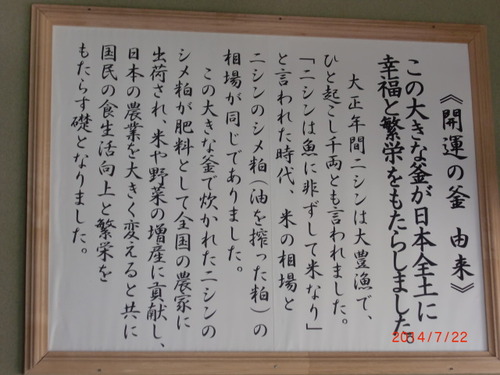 《開運の釜 由来》
この大きな釜が日本全土に
幸福と繁栄をもたらしました。
大正年間ニシンは大豊漁で、
ひと起こし千両とも言われました。
「ニシンは魚に非ずして米なり」
と言われた時代、米の相場と
ニシンのシメ粕(油を搾った粕)の
相場が同じでありました。
この大きな釜で炊かれたニシンの
シメ粕が肥料として全国の農家に
出荷され、米や野菜の増産に貢献し、
日本の農業を大きく変えると共に
国民の食生活向上と繁栄を
もたらす礎となりました。
2014/7/22